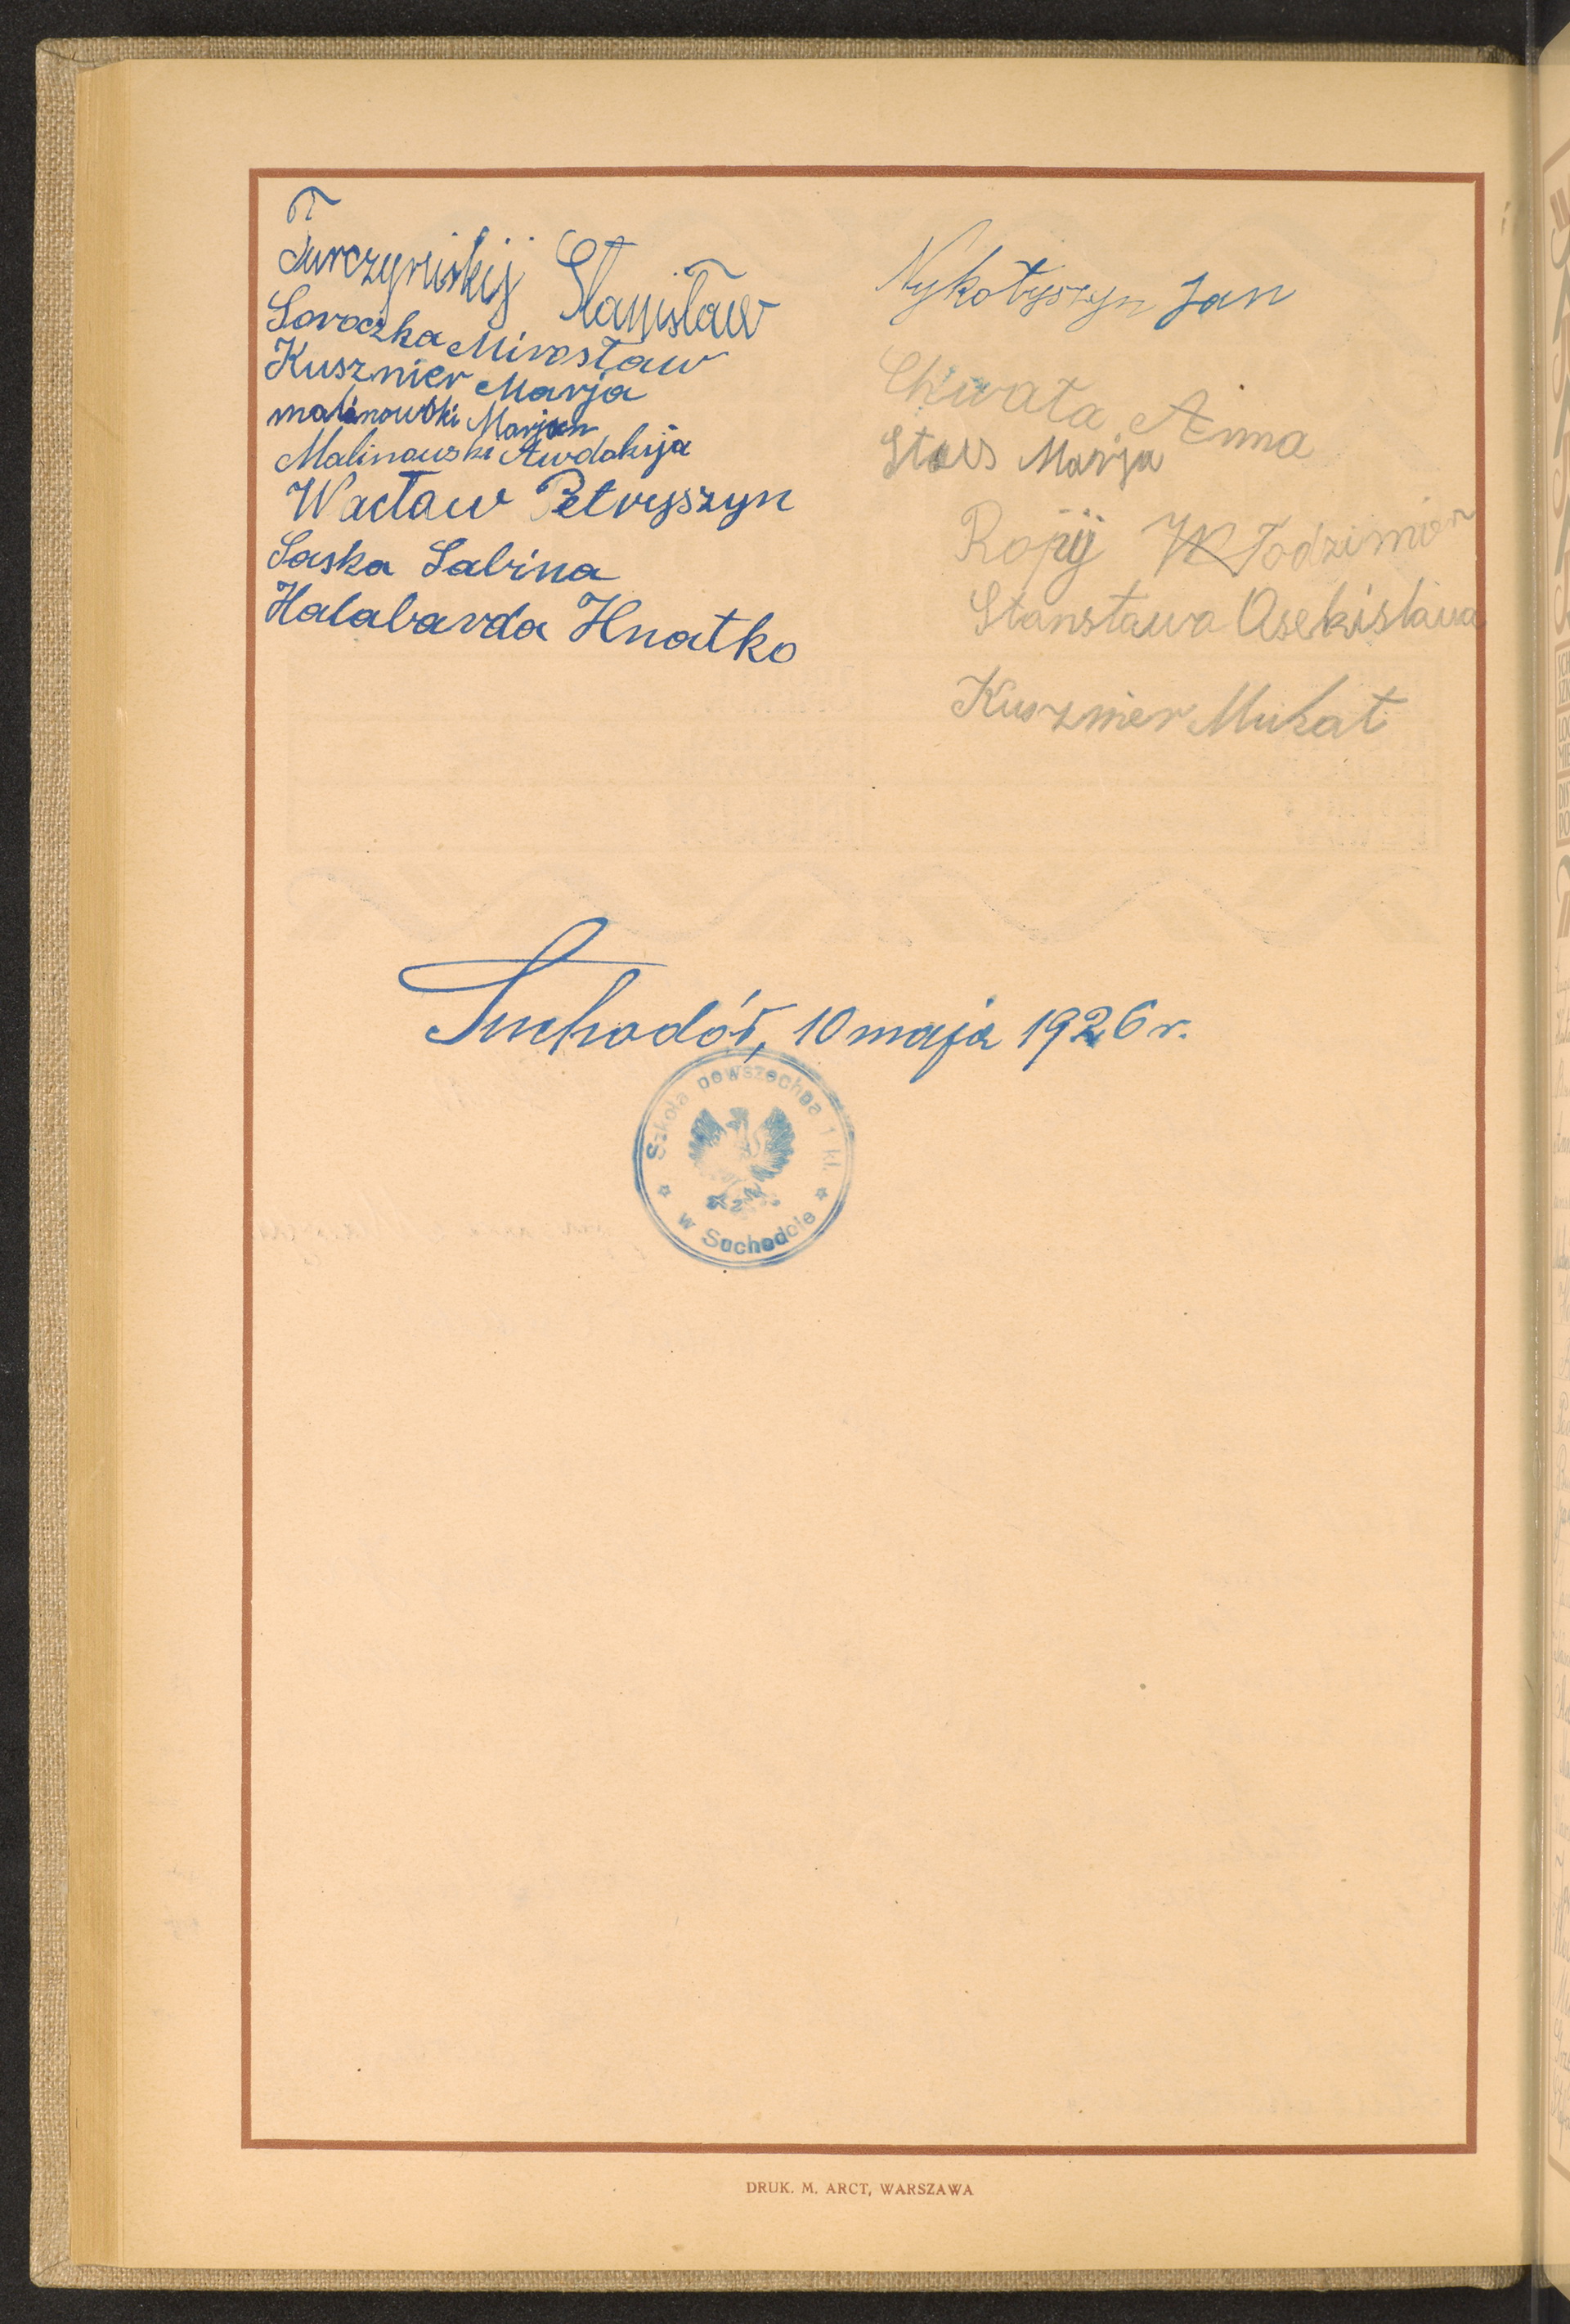 T
Turczyńskij Stanisław
Soroczka Mirosław
Kusznier Marja
malinowski Marjan
Malinowski Awdokija
Wacław Petryszyn
Saska Sabina
Halabarda Hnatko
Nykołyszyn Jan
Chwata Anna
Staes Marja
Ropij Włodzimier
Stansława
Kusznier Mukat
Suchodół, 10 maja 1926 r.
Szkoła powszechna 1 kl.
w Suchodole
DRUK. M. ARCT, WARSZAWA